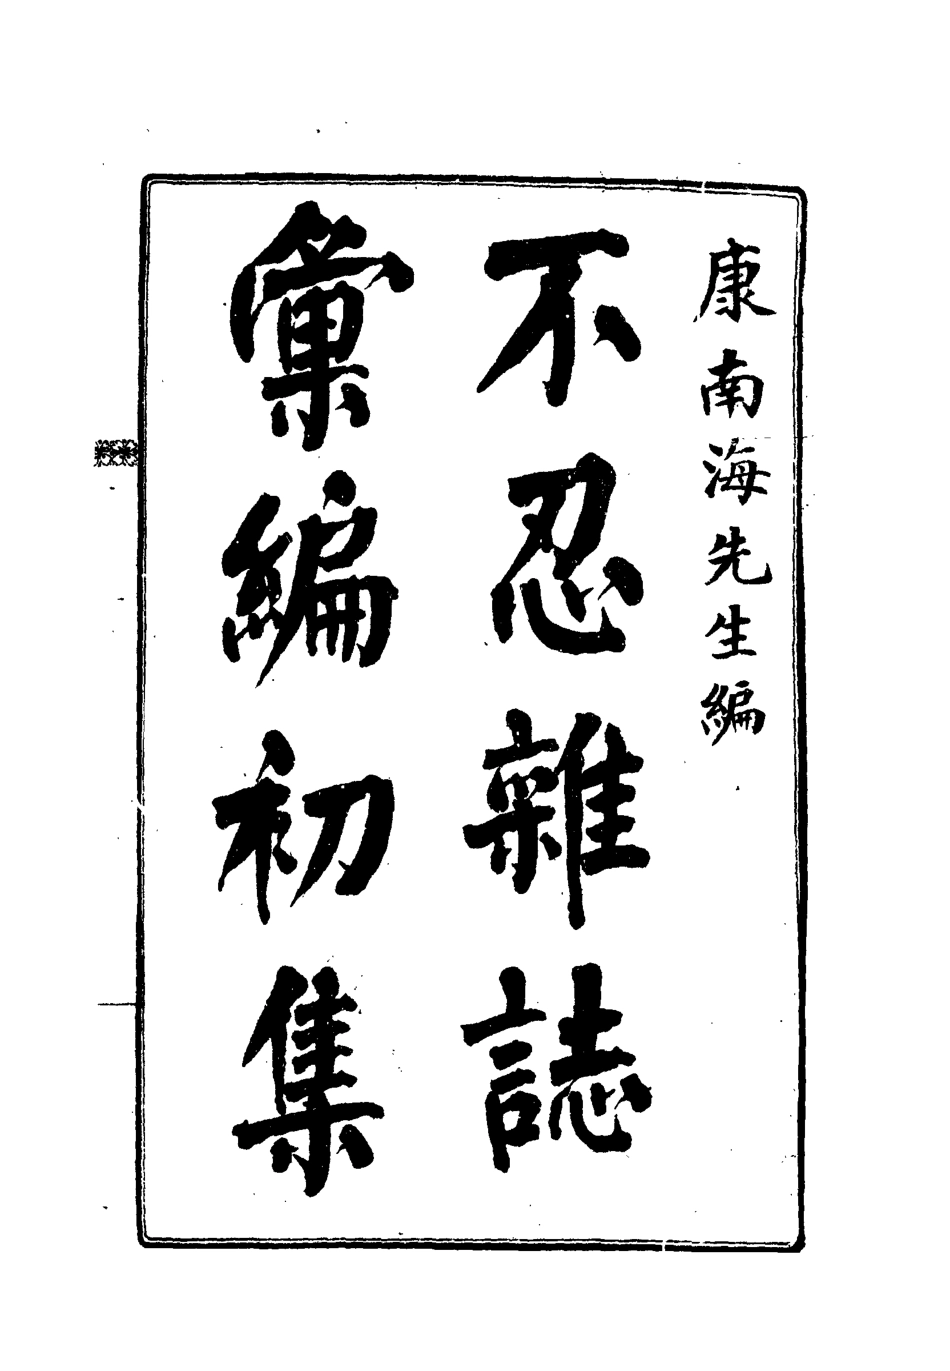 康南海先生編
不忍雜誌
彙編初集